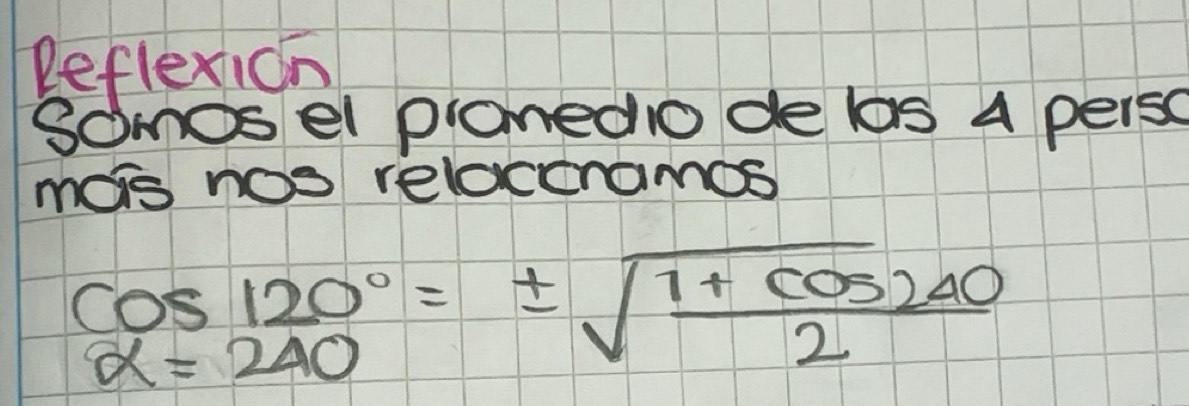 Reflexión
Somos el promedio de las 4 perso
más nos relaccnamos
cos 120° = ± √(1 + cos 240 / 2)
α = 240